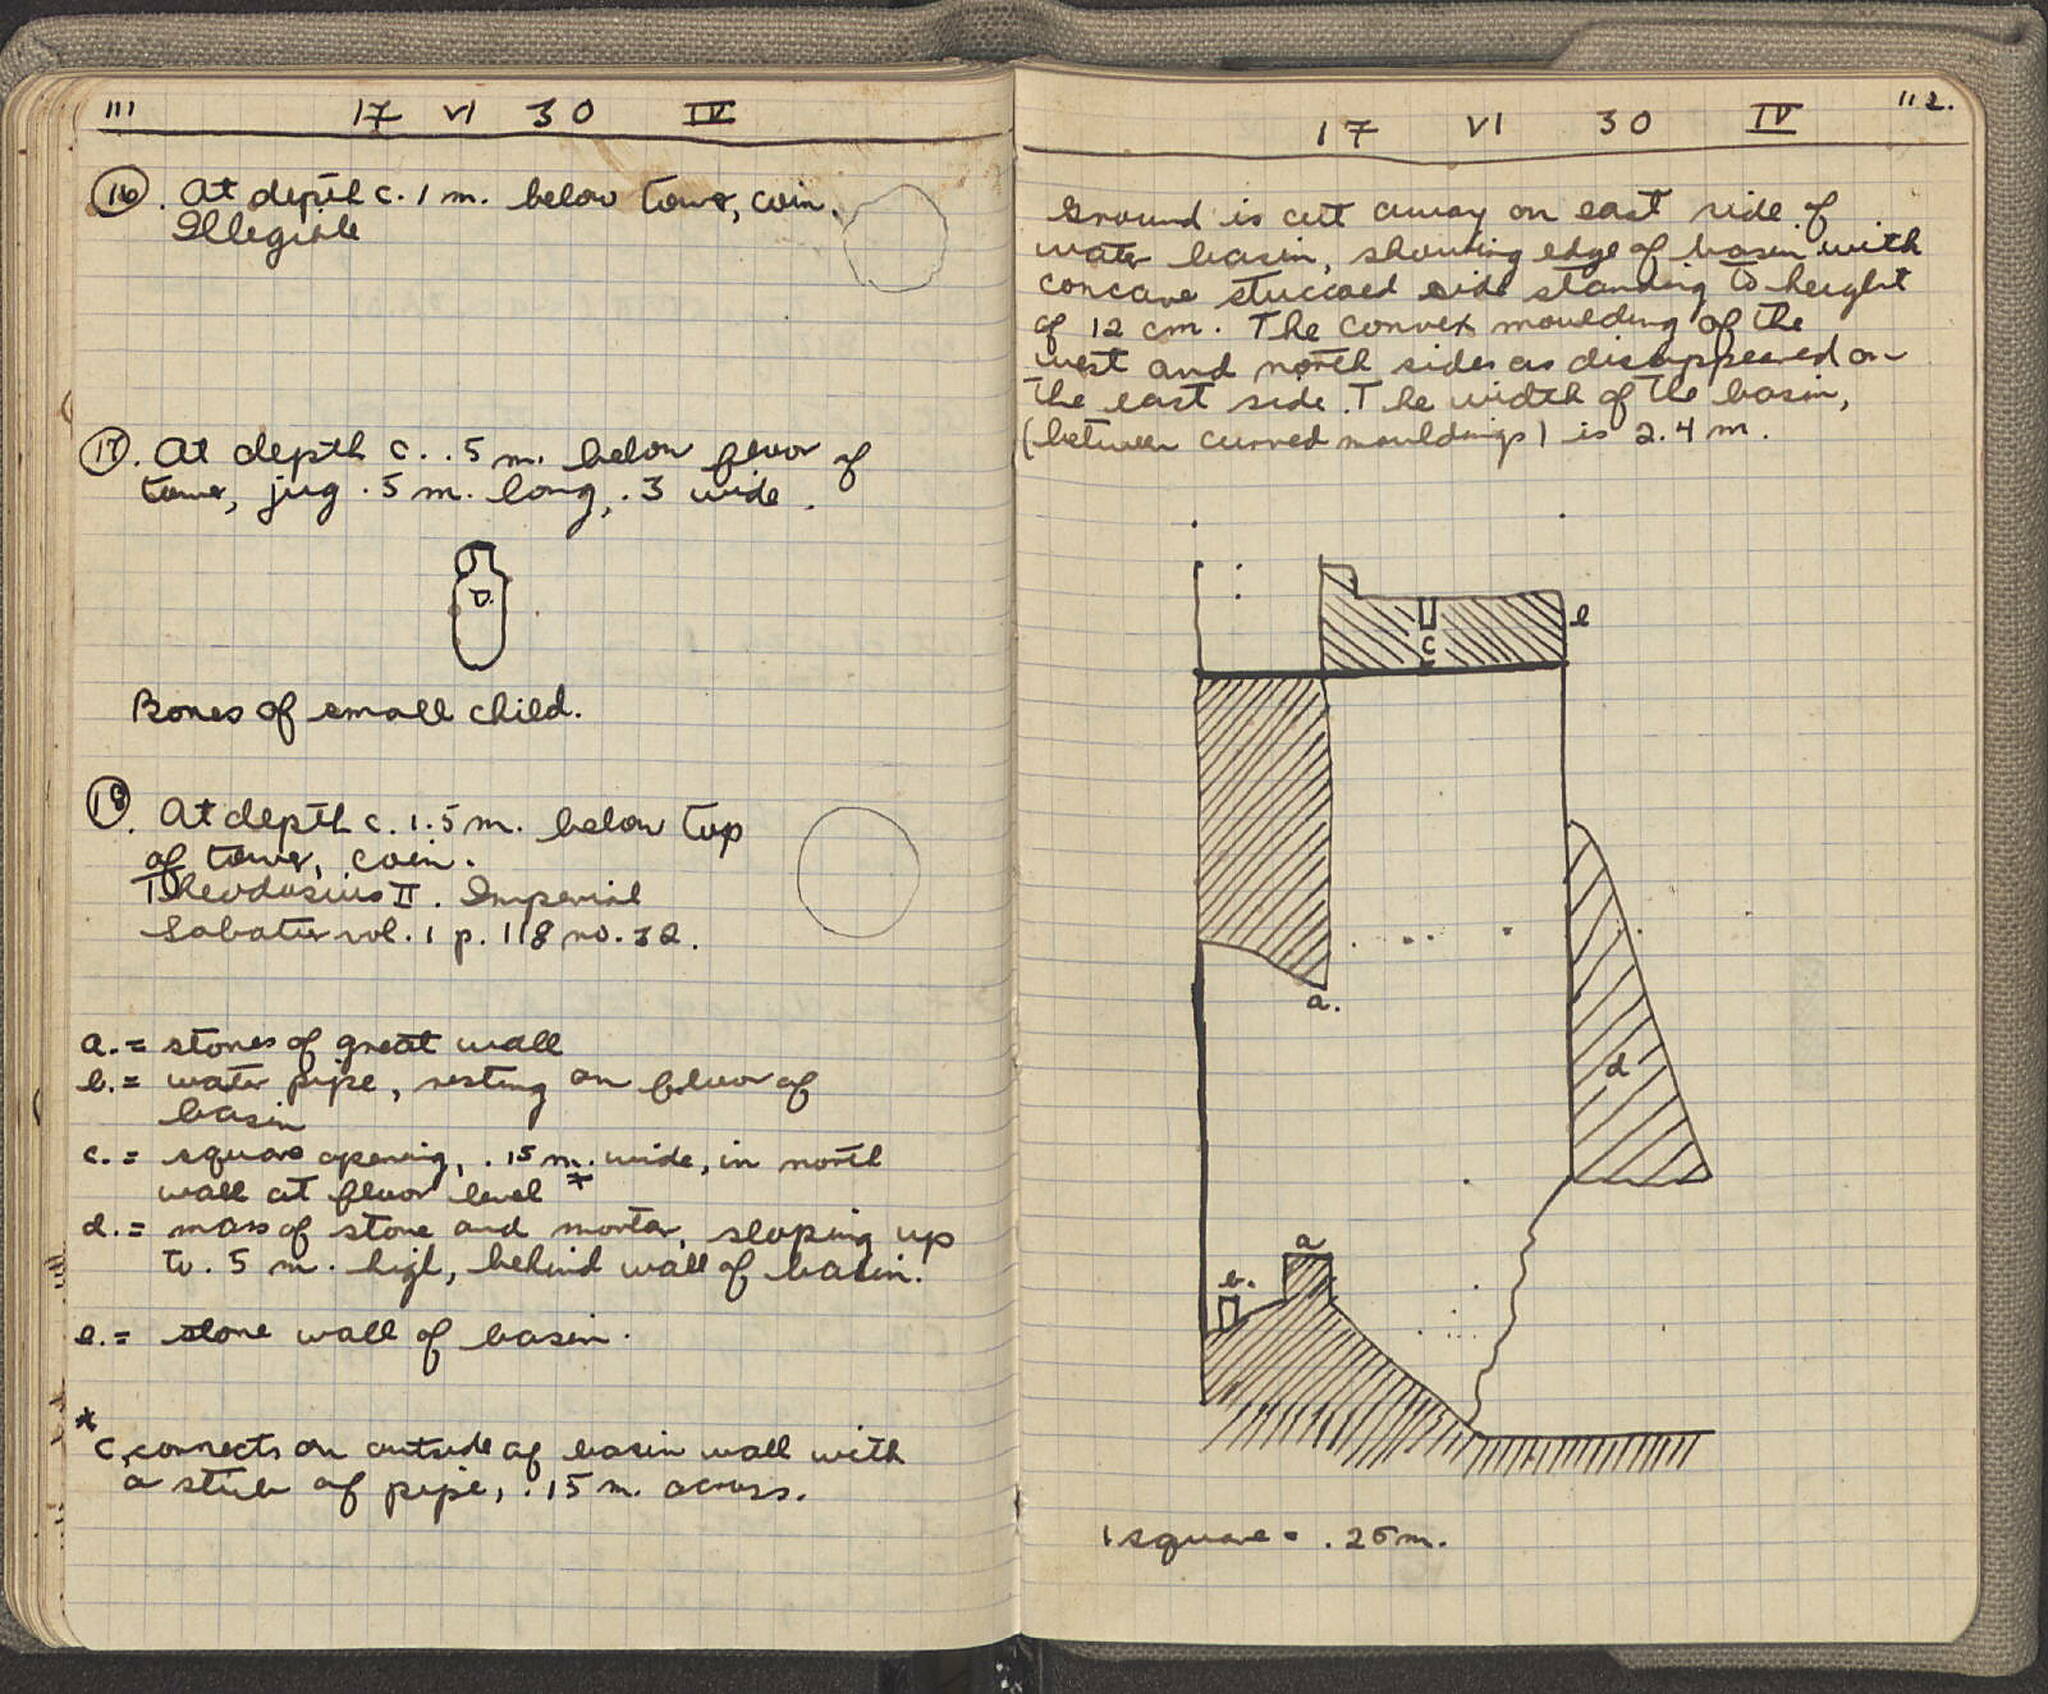 111 17 VI 30 IV
16. At depth c. 1 m. below tower, coin.
Illegible
17. At depth c. .5 m. below floor of
tower, jug .5 m. long, .3 wide.
Bones of small child.
18. At depth c. 1.5 m. below top
of tower, coin.
Theodosius II. Imperial
Sabatier vol. 1 p. 118 no. 32.
a. = stones of great wall
b. = water pipe, resting on floor of
basin
c. = square opening, .15 m. wide, in north
wall at floor level *
d. = mass of stone and mortar, sloping up
to .5 m. high, behind wall of basin.
e. = stone wall of basin.
* C connects on outside of basin wall with
a stub of pipe, .15 m. across.
17 VI 30 IV 112.
Ground is cut away on east side of
water basin, showing edge of basin with
concave stuccoed side standing to height
of 12 cm. The convex moulding of the
west and north sides as disappeared on
the east side. The width of the basin,
(between curved mouldings) is 2.4 m.
e
c
a.
d
a
b.
1 square = .25 m.